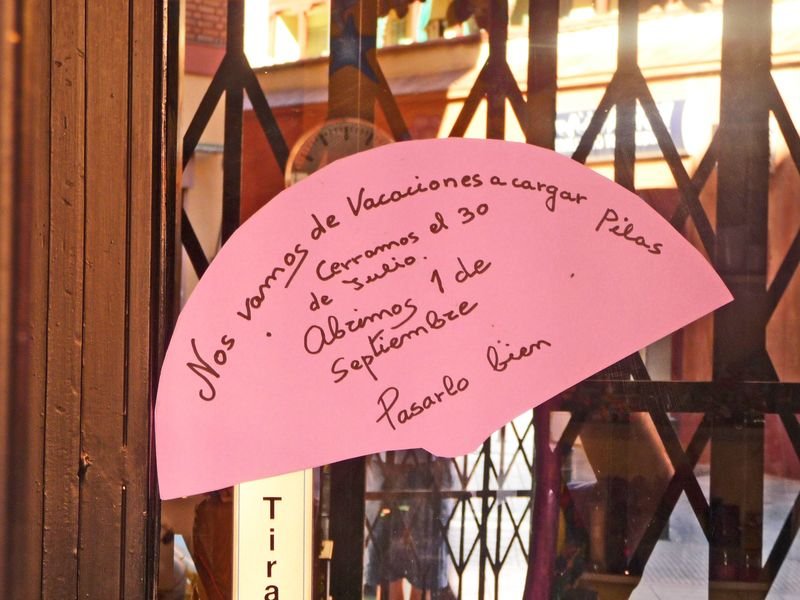 Nos vamos de Vacaciones a cargar Pilas
Cerramos el 30
de Julio.
Abrimos 1 de
Septiembre
Pasarlo bien
Tira